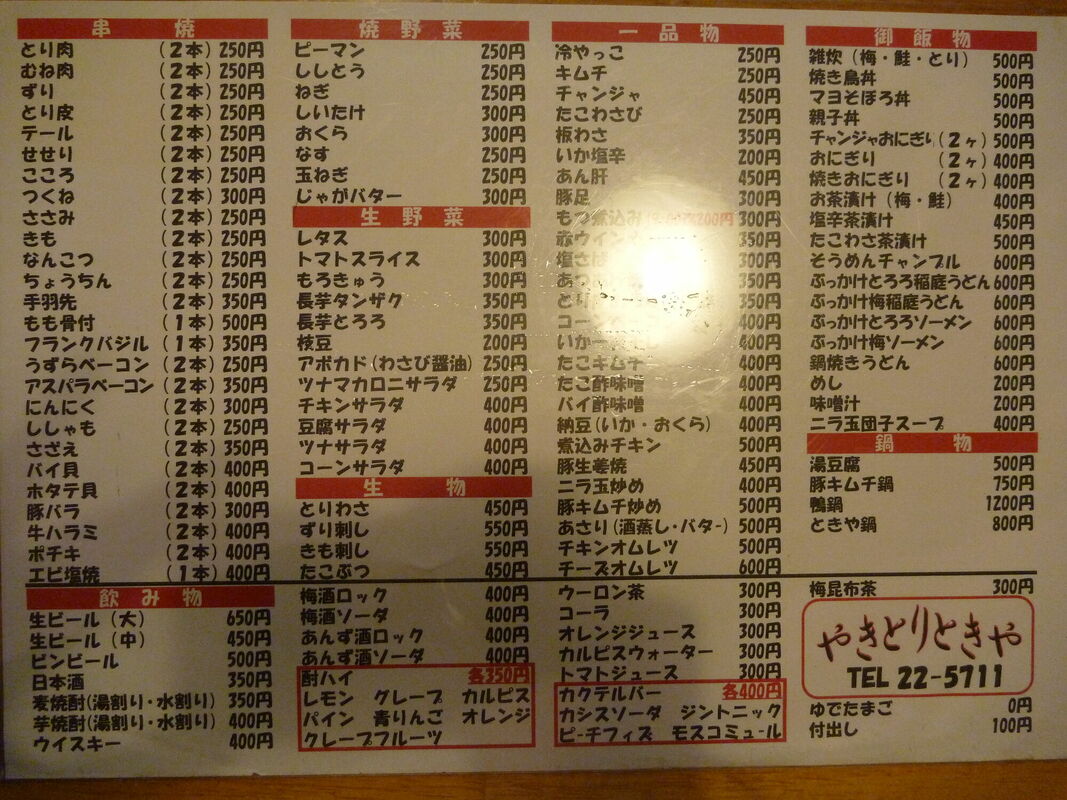 串焼
とり肉 (2本) 250円
むね肉 (2本) 250円
ずり (2本) 250円
とり皮 (2本) 250円
テール (2本) 250円
せせり (2本) 250円
こころ (2本) 250円
つくね (2本) 300円
ささみ (2本) 250円
きも (2本) 250円
なんこつ (2本) 250円
ちょうちん (2本) 250円
手羽先 (2本) 350円
もも骨付 (1本) 500円
フランクバジル (1本) 350円
うずらベーコン (2本) 250円
アスパラベーコン (2本) 350円
にんにく (2本) 300円
ししゃも (2本) 250円
さざえ (2本) 350円
バイ貝 (2本) 400円
ホタテ貝 (2本) 400円
豚バラ (2本) 300円
牛ハラミ (2本) 400円
ポチキ (2本) 400円
エビ塩焼 (1本) 400円
焼野菜
ピーマン 250円
ししとう 250円
ねぎ 250円
しいたけ 300円
おくら 300円
なす 250円
玉ねぎ 250円
じゃがバター 300円
生野菜
レタス 300円
トマトスライス 300円
もろきゅう 300円
長芋タンザク 350円
長芋とろろ 350円
枝豆 200円
アボカド(わさび醤油) 250円
ツナマカロニサラダ 250円
チキンサラダ 400円
豆腐サラダ 400円
ツナサラダ 400円
コーンサラダ 400円
生物
とりわさ 450円
ずり刺し 550円
きも刺し 550円
たこぶつ 450円
一品物
冷やっこ 250円
キムチ 250円
チャンジャ 450円
たこわさび 250円
板わさ 350円
いか塩辛 200円
あん肝 450円
豚足 300円
もつ煮込み 200円 300円
赤ウインナ 350円
塩さば 300円
あつ 350円
とり 350円
コーン 400円
いか 400円
たこキムチ 400円
たこ酢味噌 400円
バイ酢味噌 400円
納豆(いか・おくら) 400円
煮込みチキン 500円
豚生姜焼 450円
ニラ玉炒め 400円
豚キムチ炒め 500円
あさり(酒蒸し・バター) 500円
チキンオムレツ 500円
チーズオムレツ 600円
御飯物
雑炊(梅・鮭・とり) 500円
焼き鳥丼 500円
マヨそぼろ丼 500円
親子丼 500円
チャンジャおにぎり(2ヶ) 500円
おにぎり (2ヶ) 400円
焼きおにぎり (2ヶ) 400円
お茶漬け(梅・鮭) 400円
塩辛茶漬け 450円
たこわさ茶漬け 500円
そうめんチャンプル 600円
ぶっかけとろろ稲庭うどん 600円
ぶっかけ梅稲庭うどん 600円
ぶっかけとろろソーメン 600円
ぶっかけ梅ソーメン 600円
鍋焼きうどん 600円
めし 200円
味噌汁 200円
ニラ玉団子スープ 400円
鍋物
湯豆腐 500円
豚キムチ鍋 750円
鴨鍋 1200円
ときや鍋 800円
飲み物
生ビール(大) 650円
生ビール(中) 450円
ビンビール 500円
日本酒 350円
麦焼酎(湯割り・水割り) 350円
芋焼酎(湯割り・水割り) 400円
ウイスキー 400円
梅酒ロック 400円
梅酒ソーダ 400円
あんず酒ロック 400円
あんず酒ソーダ 400円
酎ハイ 各350円
レモン グレープ カルピス
パイン 青りんご オレンジ
グレープフルーツ
ウーロン茶 300円
コーラ 300円
オレンジジュース 300円
カルピスウォーター 300円
トマトジュース 300円
カクテルバー 各400円
カシスソーダ ジントニック
ピーチフィズ モスコミュール
梅昆布茶 300円
やきとりときや
TEL 22-5711
ゆでたまご 0円
付出し 100円